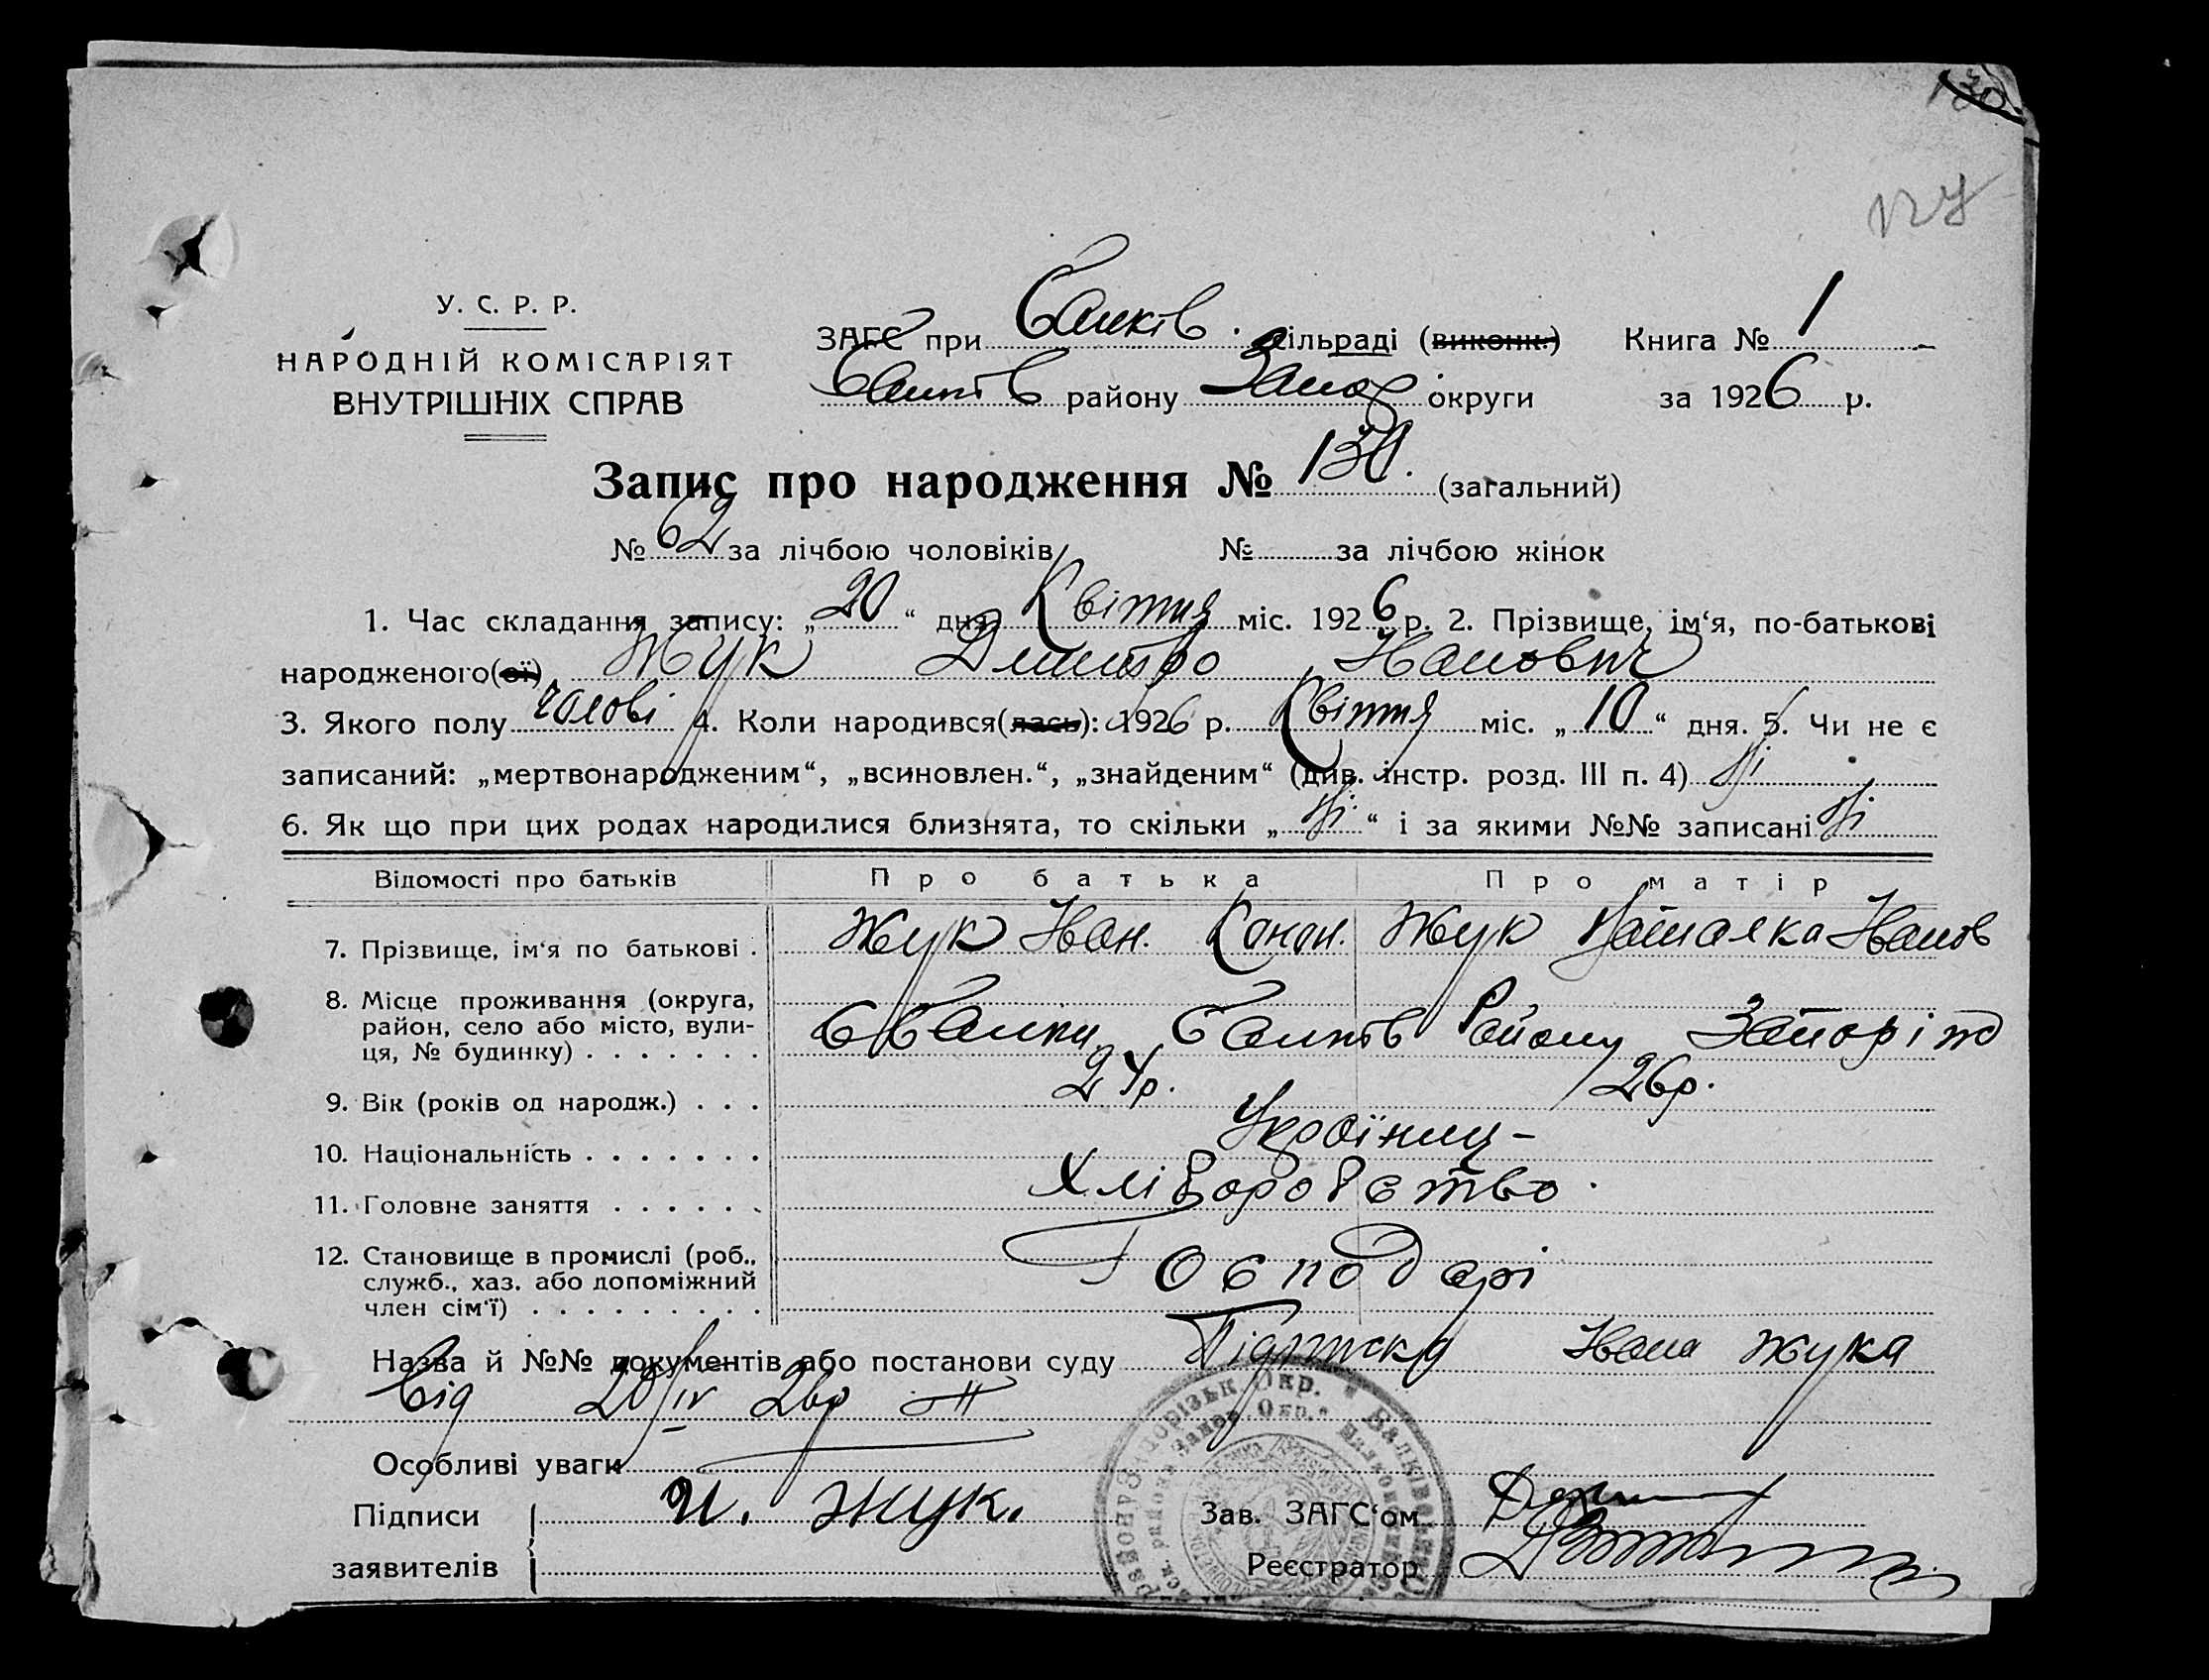 130.
127
У. С. Р. Р.
НАРОДНІЙ КОМІСАРІЯТ
ВНУТРІШНІХ СПРАВ
ЗАГС при Балків. сільраді (виконк.) Книга № 1
Балків району Запор округи за 1926 р.
Запис про народження № 130. (загальний)
№ 62 за лічбою чоловіків № за лічбою жінок
1. Час складання запису: „20“ дня Квітня міс. 1926 р. 2. Прізвище, ім‘я, по-батькові
народженого(ої) Жук Дмитро Іванович
3. Якого полу чолові 4. Коли народився(лась): 1926 р. Квітня міс. „10“ дня. 5. Чи не є
записаний: „мертвонародженим“, „всиновлен.“, „знайденим“ (див. інстр. розд. III п. 4) Ні
6. Як що при цих родах народилися близнята, то скільки „Ні“ і за якими №№ записані Ні
Відомості про батьків Про батька Про матір
7. Прізвище, ім‘я по батькові . Жук Іван. Конон. Жук Наталка Іванов
8. Місце проживання (округа,
район, село або місто, вули-
ця, № будинку) . . . . . . . с Балки Балків Району Запоріж
9. Вік (років од народж.) . . . 24р. 26р.
10. Національність . . . . . . . Українці -
11. Головне заняття . . . . . . Хліборобство.
12. Становище в промислі (роб.,
служб., хаз. або допоміжний
член сім‘ї) . . . . . . . . . Господарі
Назва й №№ документів або постанови суду Підписка Івана Жука
від 20/IV 26р
Особливі уваги
Підписи И. Жук. Зав. ЗАГС‘ом
заявителів Реєстратор